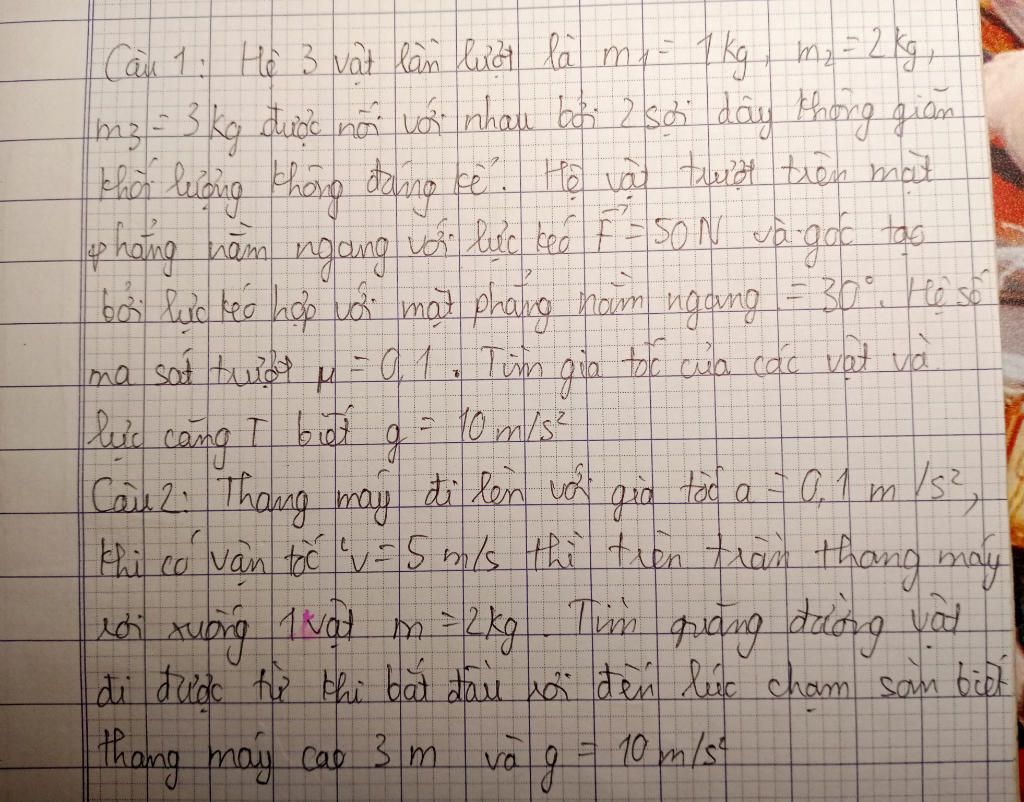 Câu 1: Hệ 3 vật lần lượt là m1 = 1kg, m2 = 2kg,
m3 = 3kg được nối với nhau bởi 2 sợi dây không giãn
khối lượng không đáng kể. Hệ vật trượt trên mặt
phẳng nằm ngang với lực kéo F⃗ = 50N và góc tạo
bởi lực kéo hợp với mặt phẳng nằm ngang = 30°. Hệ số
ma sát trượt μ = 0,1. Tìm gia tốc của các vật và
lực căng T biết g = 10 m/s²
Câu 2: Thang máy đi lên với gia tốc a = 0,1 m/s²,
khi có vận tốc v = 5 m/s thì trên trần thang máy
rơi xuống 1 vật m = 2kg. Tìm quãng đường vật
đi được từ khi bắt đầu rơi đến lúc chạm sàn biết
thang máy cao 3 m và g = 10 m/s²